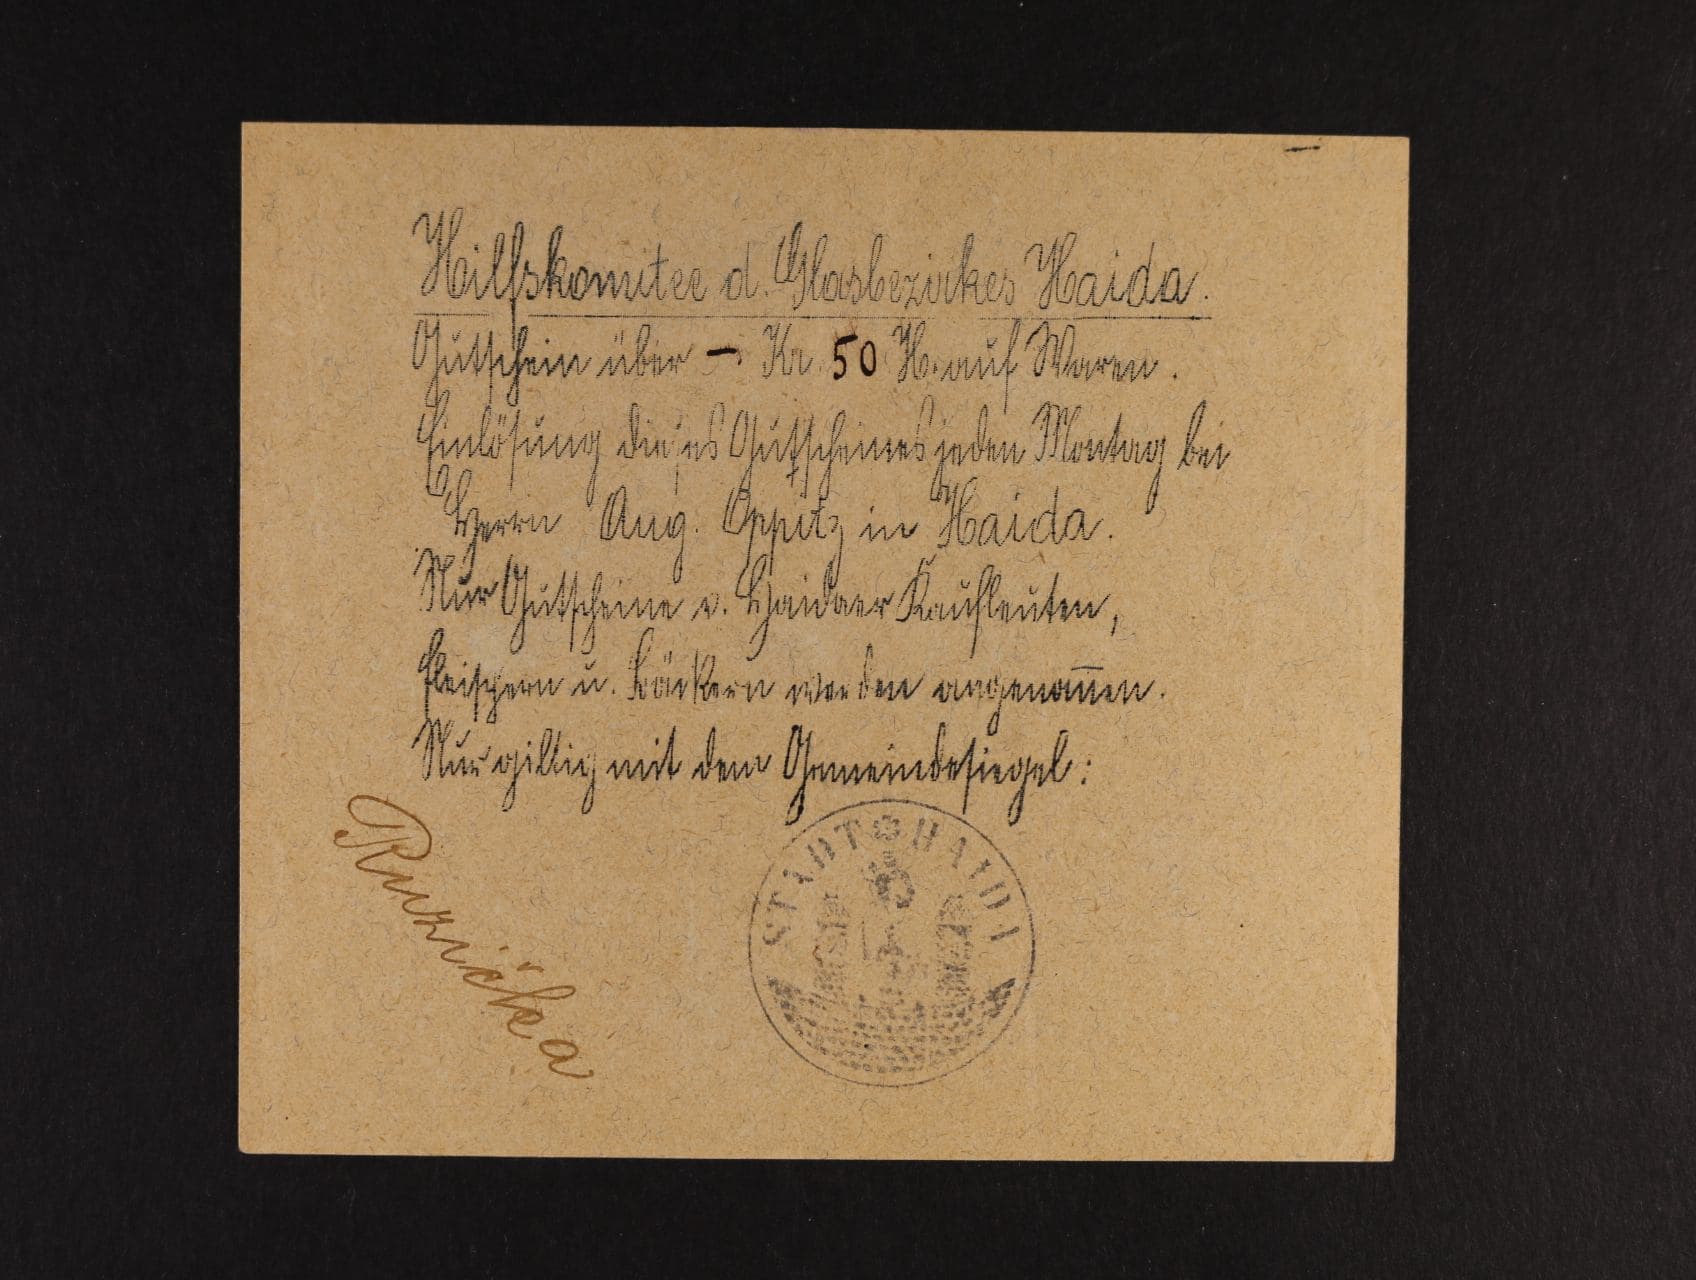 Hilfskomitee d. Glasbezirkes Haida.
Gutschein über – Kr. 50 H. auf Waren.
Einlösung dieses Gutscheines jeden Montag bei
Herrn Aug. Oppitz in Haida.
Nur Gutscheine v. Haidaer Kaufleuten,
Fleischern u. Bäckern werden angenom̅en.
Nur giltig mit dem Gemeindesiegel:
Ruzička
STADT HAIDA